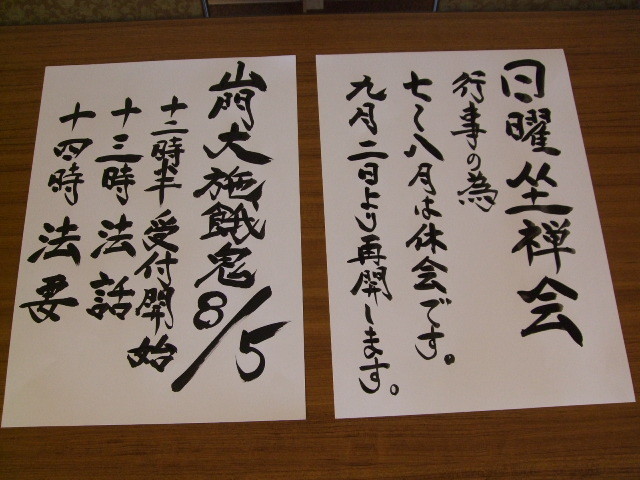 日曜坐禅会
行事の為
七〜八月は休会です。
九月二日より再開します。
山門大施餓鬼8/5
十二時半受付開始
十三時法話
十四時法要